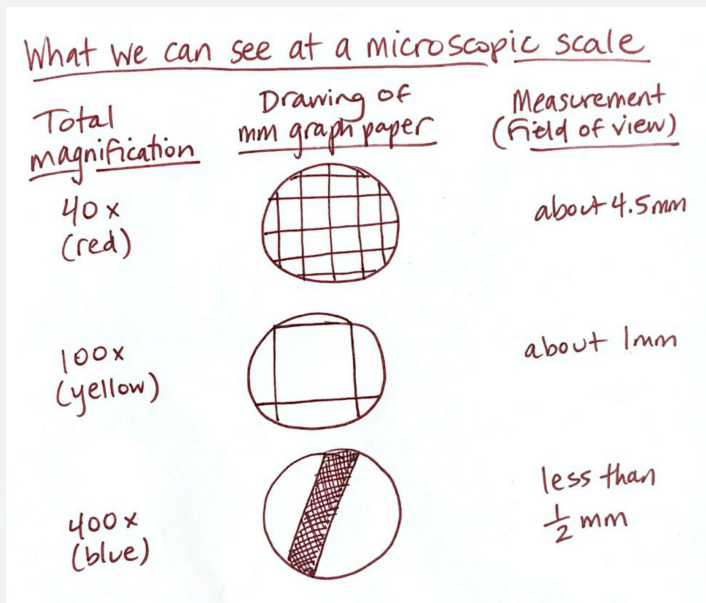 What we can see at a microscopic scale
Total
magnification
Drawing of
mm graph paper
Measurement
(field of view)
40x
(red)
about 4.5mm
100x
(yellow)
about 1mm
400x
(blue)
less than
1/2 mm